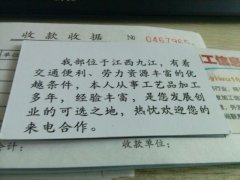 收款收据
№ 0467965
工信息
我部位于江西九江，有着
交通便利、劳力资源丰富的优
越条件，本人从事工艺品加工
多年，经验丰富，是您发展创
业的可选之地，热忱欢迎您的
来电合作。
收款单位：